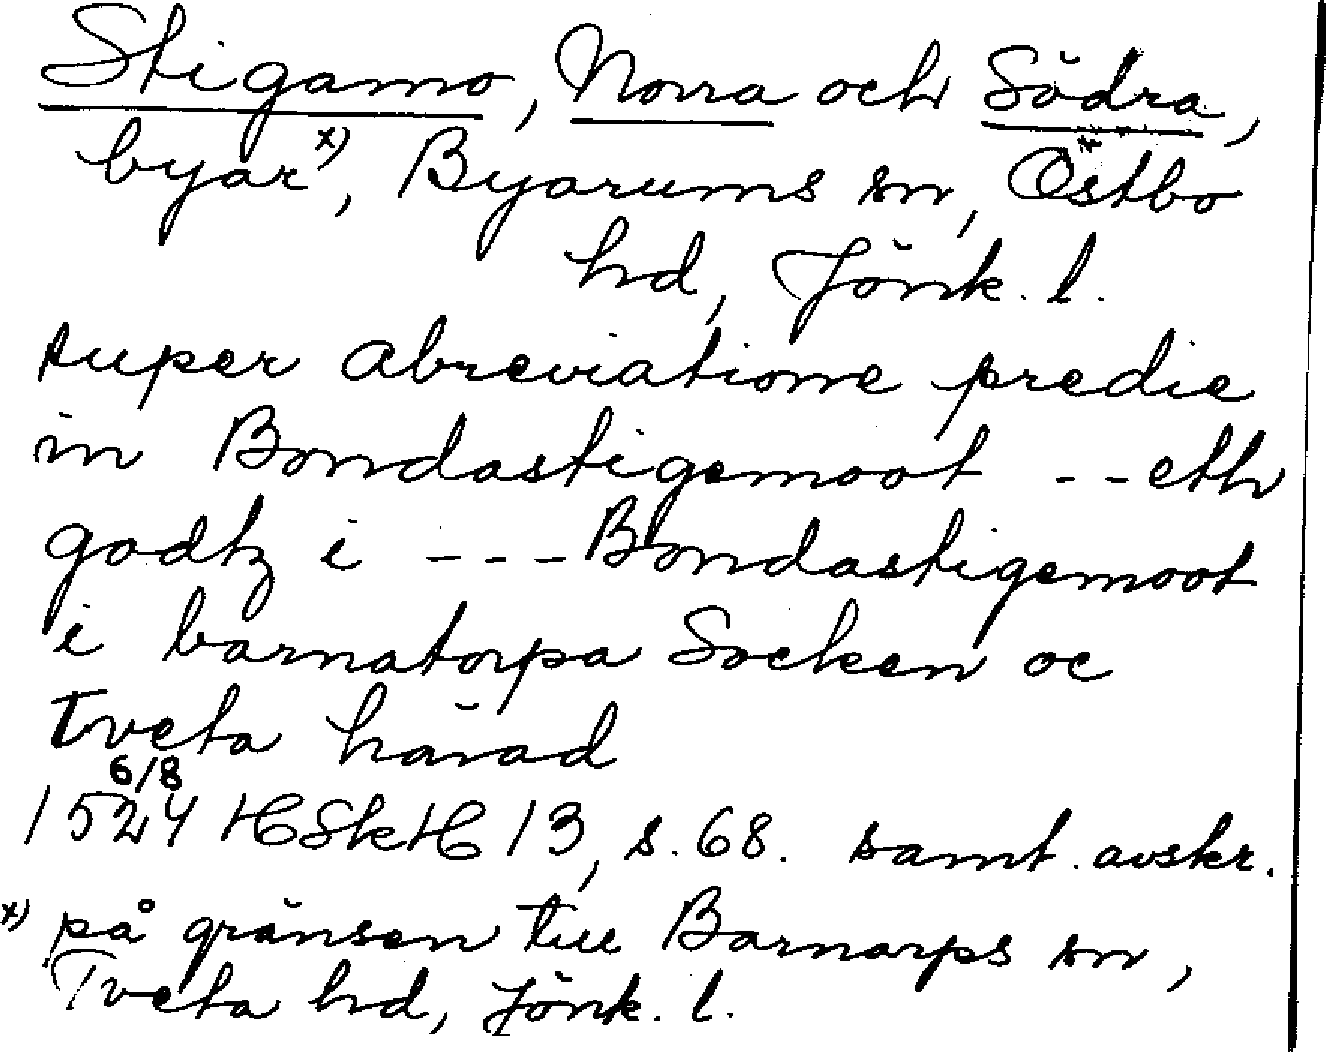 Stigamo, Norra och Södra,
byar x), Byarums sn, Östbo
hd, Jönk. l.
super abreviatione predie
in Bondastigemoot -- eth
godtz i --- Bondastigemoot
i barnatorpa Socken oc
Tveta härad
6/8
1524 HSkH 13, s. 68. samt. avskr.
x) på gränsen till Barnarps sn,
Tveta hd, Jönk. l.